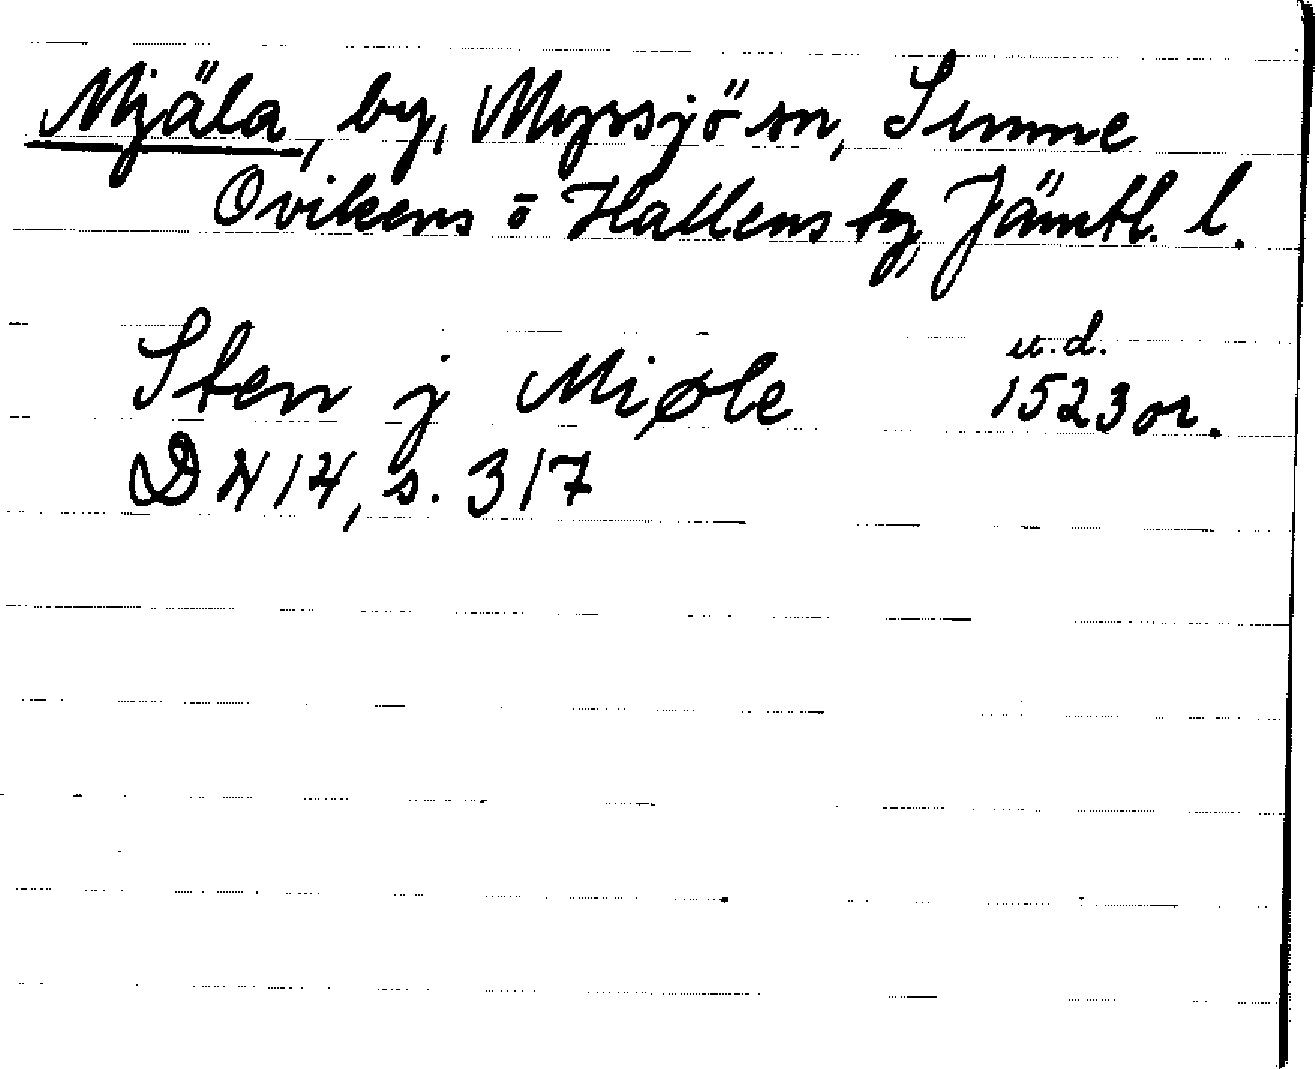 Mjäla, by, Myrsjö sn, Sunne
Ovikens o Hallens tg, Jämtl. l.
Sten j Miøle u.d. 1523 or.
DN 14, s. 317